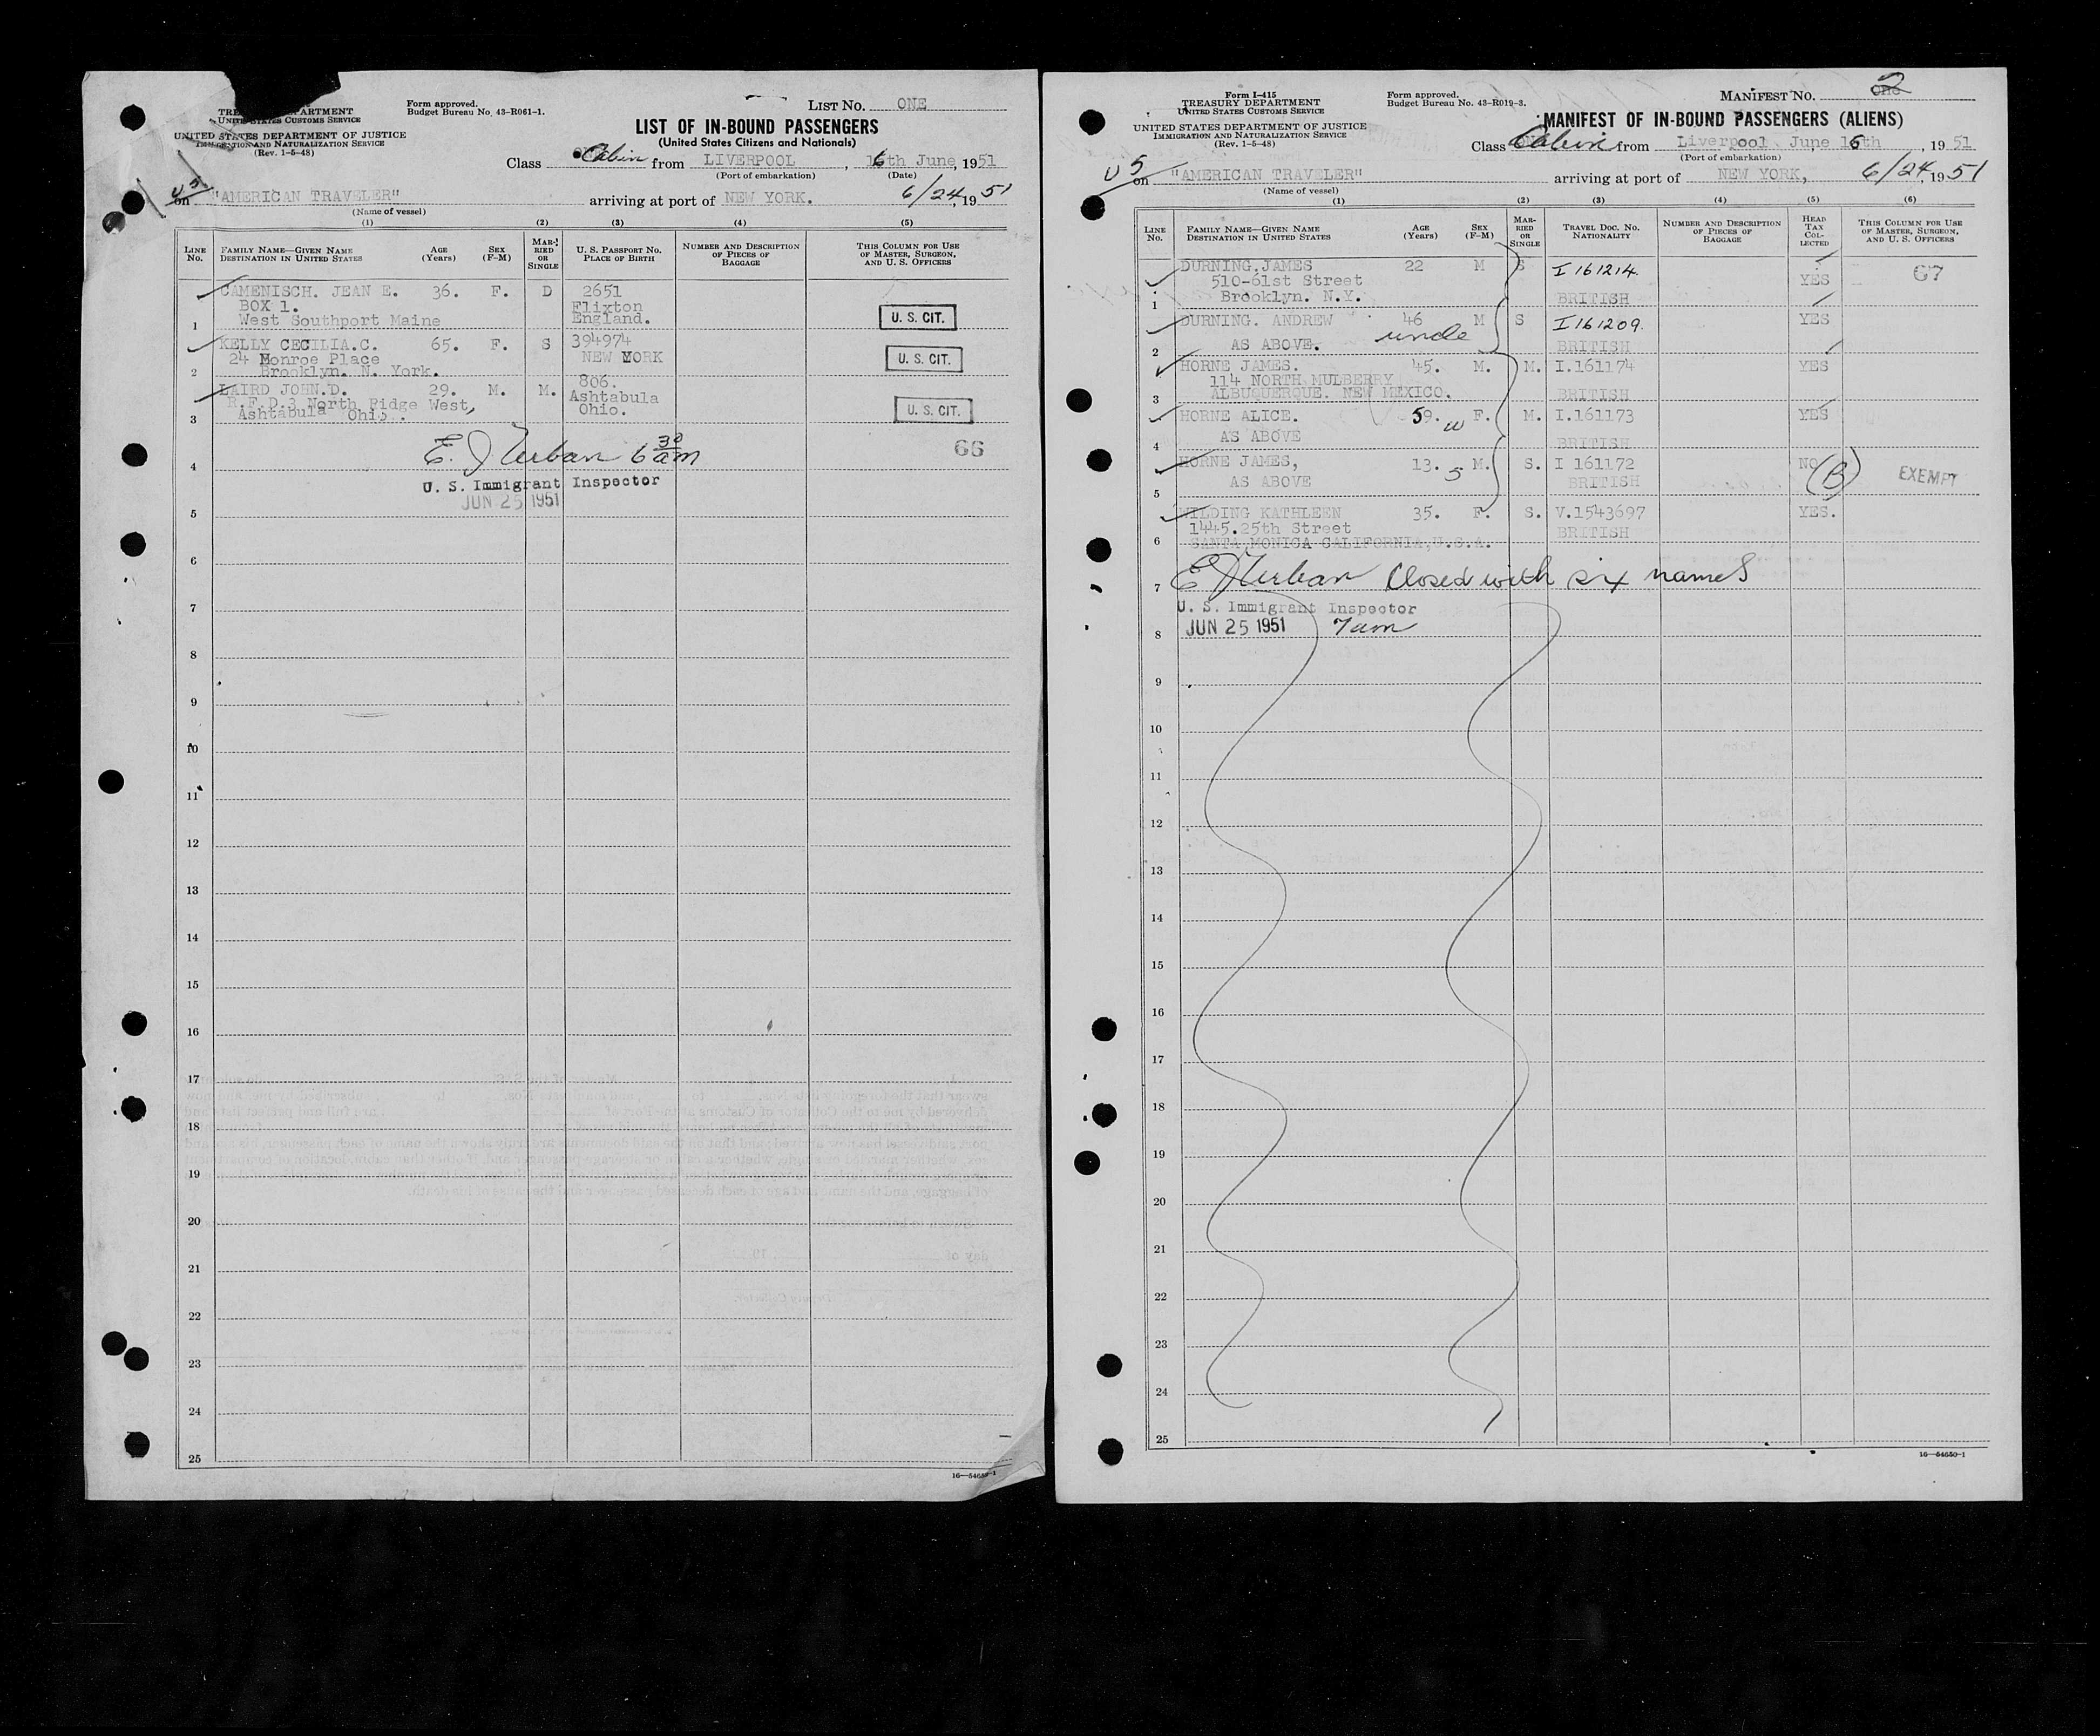 DEPARTMENT
UNITED STATES CUSTOMS SERVICE
UNITED STATES DEPARTMENT OF JUSTICE
IMMIGRATION AND NATURALIZATION SERVICE
(Rev. 1-5-48)
Form approved.
Budget Bureau No. 43-R061-1.
LIST No. ONE
LIST OF IN-BOUND PASSENGERS
(United States Citizens and Nationals)
Class Cabin from LIVERPOOL, 16th June, 1951
(Port of embarkation) (Date)
on "AMERICAN TRAVELER" arriving at port of NEW YORK. 6/24, 1951
(Name of vessel)
(1) (2) (3) (4) (5)
LINE No.
FAMILY NAME—GIVEN NAME
DESTINATION IN UNITED STATES
AGE (Years)
SEX (F-M)
MARRIED OR SINGLE
U. S. PASSPORT No.
PLACE OF BIRTH
NUMBER AND DESCRIPTION OF PIECES OF BAGGAGE
THIS COLUMN FOR USE OF MASTER, SURGEON, AND U. S. OFFICERS
CAMENISCH. JEAN E. 36. F. D 2651
BOX 1. Flixton
1 West Southport Maine England. U. S. CIT.
KELLY CECILIA.C. 65. F. S 394974
24 Monroe Place NEW YORK U. S. CIT.
2 Brooklyn. N. York.
LAIRD JOHN.D. 29. M. M. 806.
R.F.D.3 North Ridge West, Ashtabula
3 Ashtabula Ohio. Ohio. U. S. CIT.
4 66
6 30 am
U. S. Immigrant Inspector
JUN 25 1951
5
6
7
8
9
10
11
12
13
14
15
16
17
18
19
20
21
22
23
24
25
Form I-415
TREASURY DEPARTMENT
UNITED STATES CUSTOMS SERVICE
UNITED STATES DEPARTMENT OF JUSTICE
IMMIGRATION AND NATURALIZATION SERVICE
(Rev. 1-5-48)
Form approved.
Budget Bureau No. 43-R019-3.
MANIFEST No. 2
MANIFEST OF IN-BOUND PASSENGERS (ALIENS)
Class Cabin from Liverpool, June 16th, 1951
(Port of embarkation)
on "AMERICAN TRAVELER" arriving at port of NEW YORK, 6/24, 1951
(Name of vessel)
(1) (2) (3) (4) (5) (6)
LINE No.
FAMILY NAME—GIVEN NAME
DESTINATION IN UNITED STATES
AGE (Years)
SEX (F-M)
MARRIED OR SINGLE
TRAVEL DOC. No.
NATIONALITY
NUMBER AND DESCRIPTION OF PIECES OF BAGGAGE
HEAD TAX COLLECTED
THIS COLUMN FOR USE OF MASTER, SURGEON, AND U. S. OFFICERS
DURNING, JAMES 22 M S I 161214 YES 67
510-61st Street
1 Brooklyn. N.Y. BRITISH
DURNING. ANDREW 46 M S I 161209. YES
uncle
2 AS ABOVE. BRITISH
HORNE JAMES. 45. M. M. I.161174 YES
114 NORTH MULBERRY
3 ALBUQUERQUE. NEW MEXICO. BRITISH
HORNE ALICE. 59. w F. M. I.161173 YES
4 AS ABOVE BRITISH
HORNE JAMES, 13. S M. S. I 161172 NO (B) EXEMPT
5 AS ABOVE BRITISH
WILDING KATHLEEN 35. F. S. V.1543697 YES.
1445.25th Street BRITISH
6 SANTA MONICA CALIFORNIA,U.S.A.
7 Closed with six names
U. S. Immigrant Inspector
8 JUN 25 1951 7am
9
10
11
12
13
14
15
16
17
18
19
20
21
22
23
24
25
16—54650-1